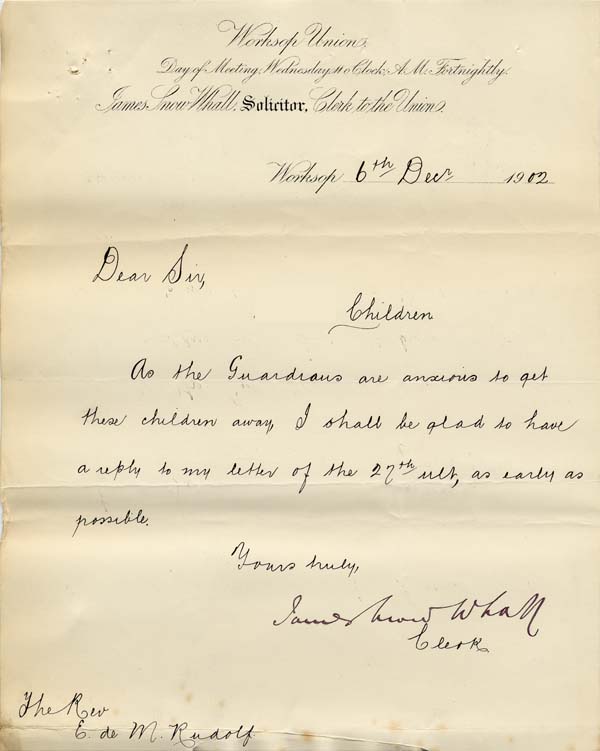 Worksop Union.
Day of Meeting, Wednesdays 11 o'Clock, A.M. Fortnightly.
James Snow Whall, Solicitor, Clerk to the Union.
Worksop 6th Decr 1902
Dear Sir,
Children
As the Guardians are anxious to get
these children away, I shall be glad to have
a reply to my letter of the 27th ult, as early as
possible.
Yours truly,
James Snow Whall
Clerk
The Rev
E. de M. Rudolf